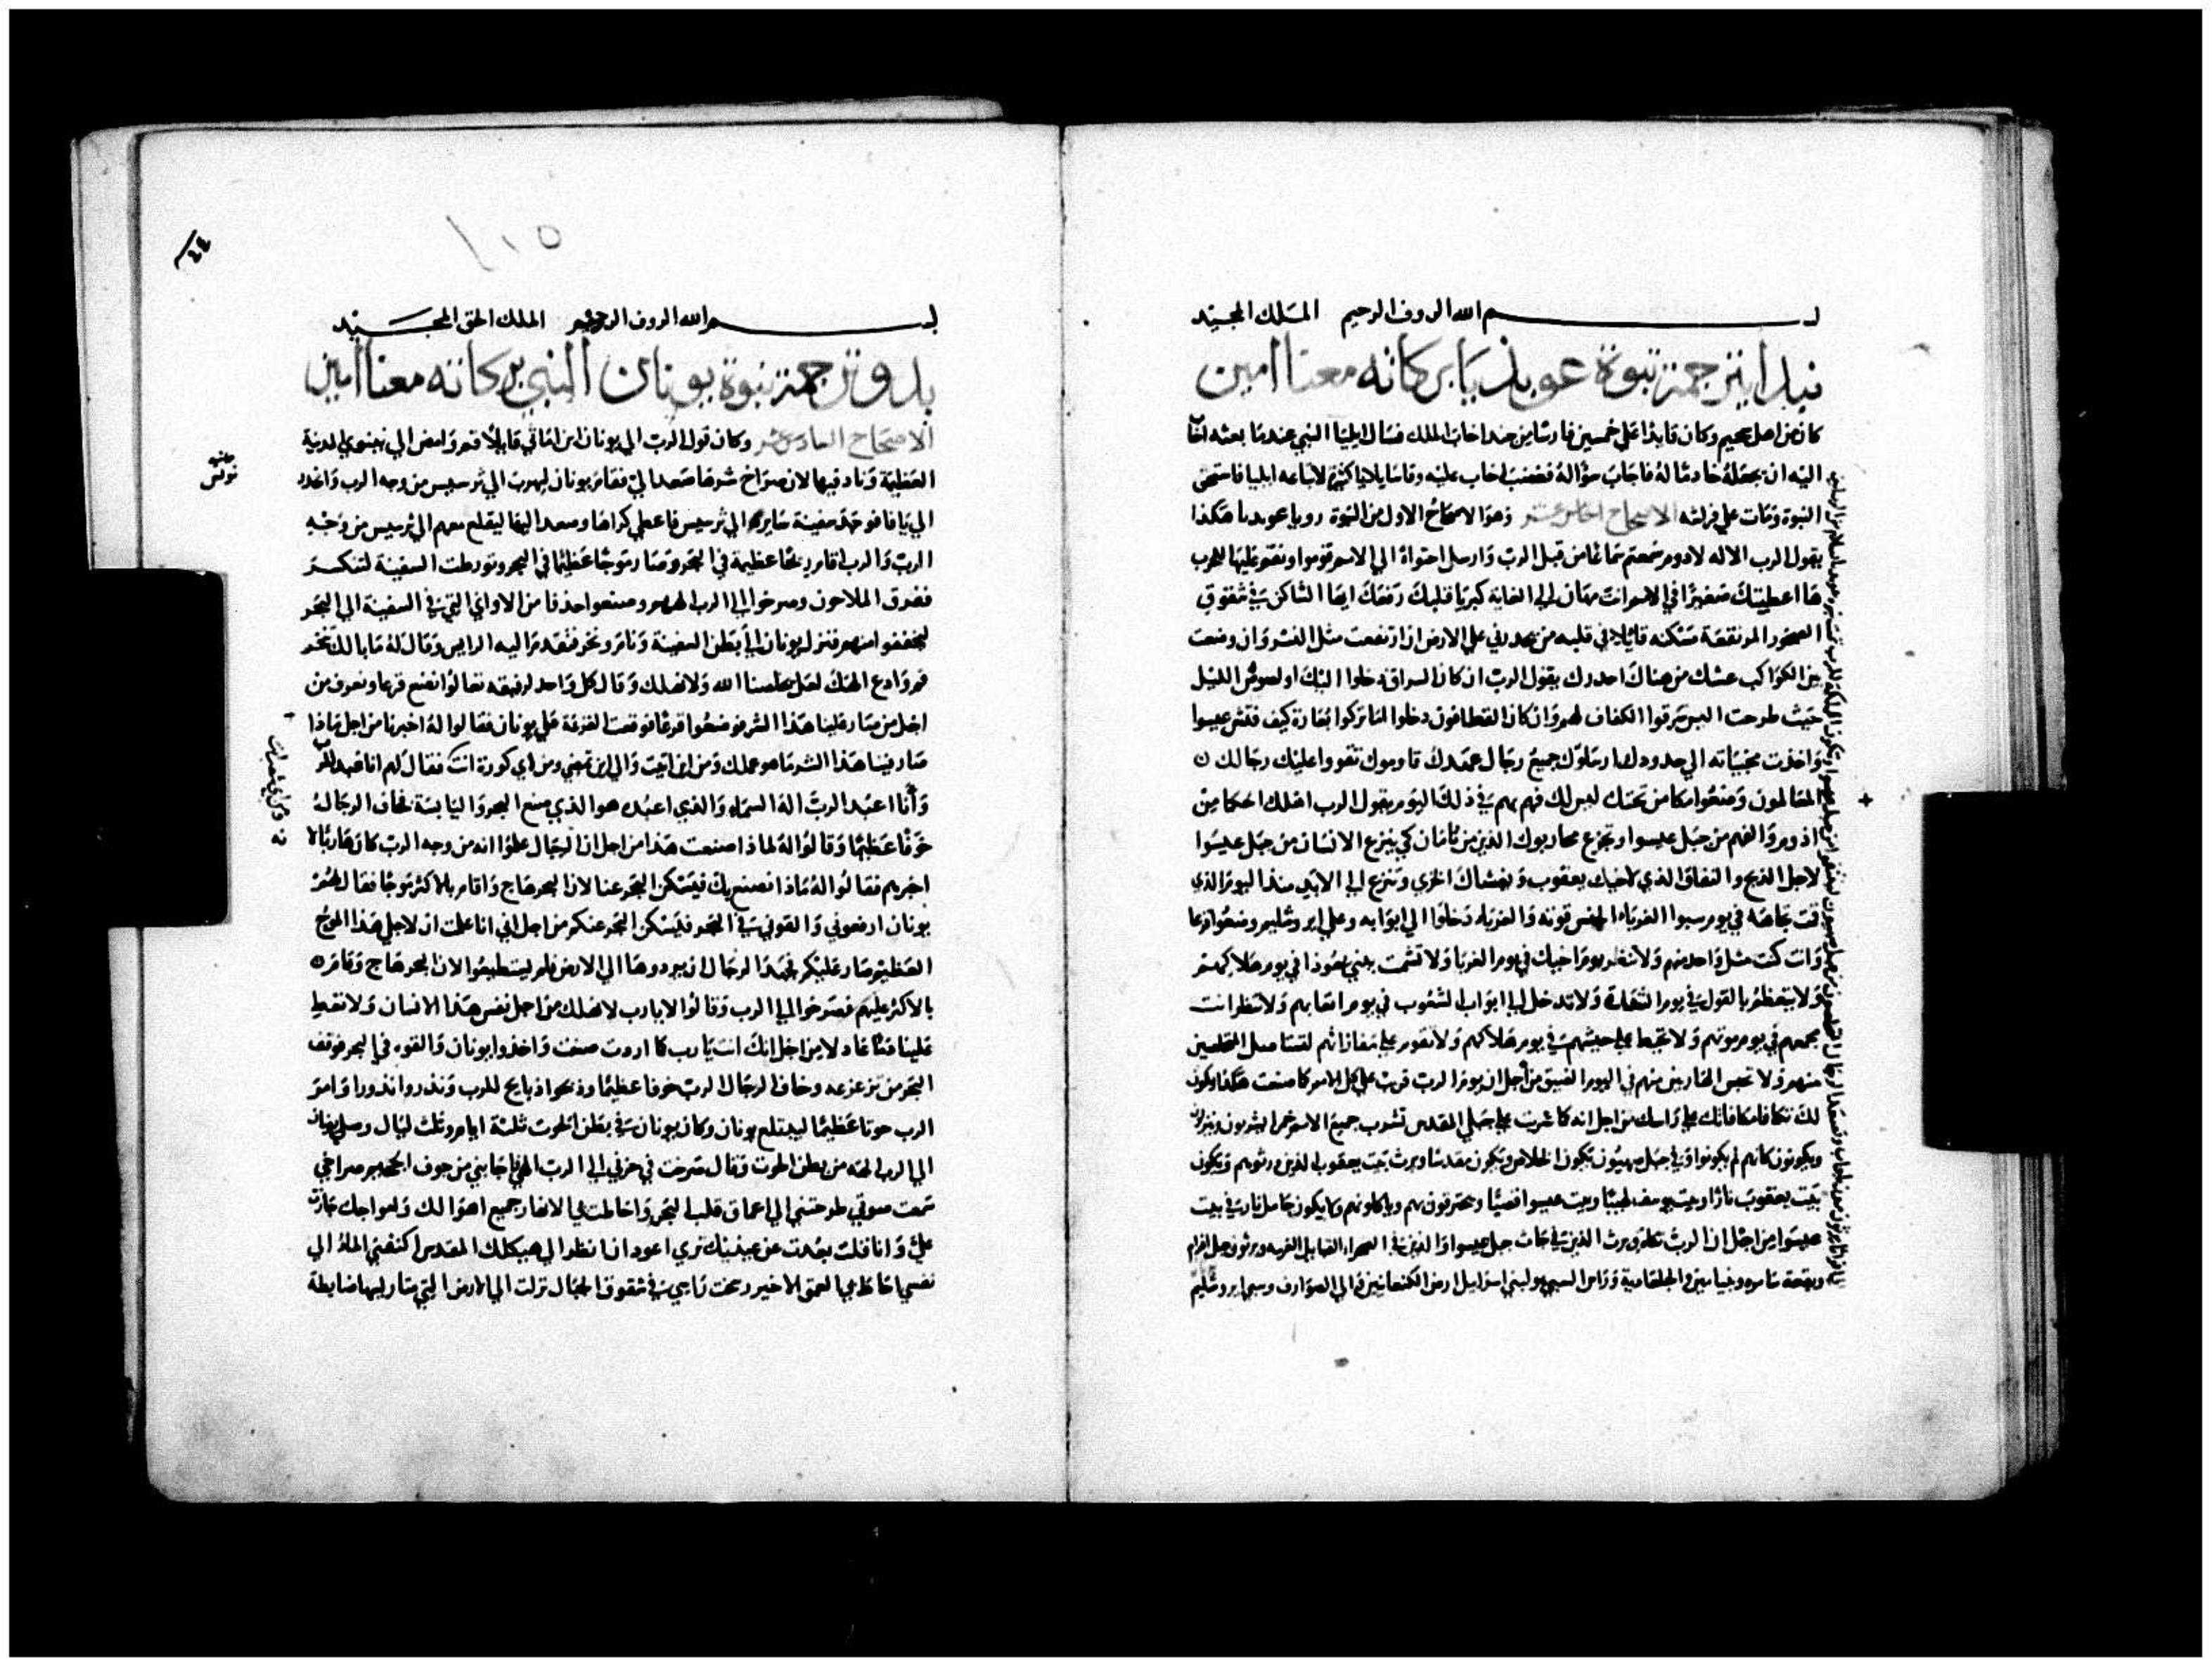 بسم الله الروف الرحيم الملك المجيد
نبدا بترجمة نبوة عوبذيا بركاته معنا امين
كان من اهل وكان قايدا علي خمسين فارسا من جند اخاب الملك فسال ايليا النبي عندما بعثه اخاب
اليه ان يجعله خادما له فاجاب سؤاله فغضب اخاب عليه وقاسا بلايا كثيرة لاتباعه ايليا فاستحق
النبوة ومات علي فراشه الاصحاح الخامس عشر وهو الاصحاح الاول من النبوة رويا عوبديا هكذا
يقول الرب الاله لادوم سمعتم سماعا من قبل الرب وارسل احتواة الي الامم قوموا ونقوم عليها للحرب
ها اعطيتك صغيرا في الامم انت مهان الي الغاية كبريا قلبك رفعك ايها الساكن في شقوق
الصخور المرتفعة مسكنه قايلا في قلبه من يحدرني علي الارض ان ارتفعت مثل النسر وان وضعت
بين الكواكب عشك من هناك احدرك يقول الرب ان كان السراق دخلوا اليك او لصوص الليل
حيث طرحت اليس سرقوا الكفاف لهم وان كان القطافون دخلوا اما تركوا بقارة كيف فتش عيسوا
واخذت مخبياته الي حدودك ارسلوك جميع رجال عهدك قاوموك تقووا عليك رجالك
المسالمون وضعوا مكامن تحتك ليس لك فهم بهم في ذلك اليوم يقول الرب اهلك الحكما من
اذوم والفهم من جبل عيسوا وتجزع محاربوك الذين من تامان كي ينزع الانسان من جبل عيسوا
لاجل الذبح والنفاق الذي لاخيك يعقوب ويغشاك الخزي وتنزع الي الابد منذ اليوم الذي
قمت تجاهه في يوم سبوا الغرباء قوته والغرباء دخلوا الي ابوابه وعلي ايروشليم وضعوا قرعا
وانت كنت مثل واحد منهم ولا تنظر يوم اخيك في يوم الغربا ولا تشمت ببني يهوذا في يوم هلاكهم
ولا تتعظم بالقول في يوم الشدة ولا تدخل الي ابواب الشعوب في يوم اتعابهم ولا تنظر انت
مجمعهم في يوم موتهم ولا علي جيشهم في يوم هلاكهم ولا تقوم علي مفازاتهم لتستاصل المخلصين
منهم ولا تحبس الهاربين منهم في اليوم الضيق من اجل ان يوم الرب قريب علي كل الامم كما صنعت هكذا يكون
لك تكافا مكافاتك علي راسك من اجل انه كما شربت علي جبلي المقدس تشرب جميع الامم خمرا يشربون
ويكونون كانهم لم يكونوا وفي جبل صهيون تكون الخلاص ويكون مقدسا ويرث بيت يعقوب الذين ورثوهم ويكون
بيت يعقوب نارا وبيت يوسف لهيبا وبيت عيسوا قصبا ويحترقون بهم وياكلونهم ولا يكون حامل نار في بيت
عيسوا من اجل ان الرب تكلم ويرث الذين في جبل عيسوا والذين في الصحراء القبايل الغريبة ويرثون جبل افرام
وبقعة سامره وبنيامين والجلعادية وراس السبي لبني اسرايل ارض الكنعانيين الي الصوارف وسبي ايروشليم
بسم الله الروف الرحيم الملك الحق المجيد
بدو ترجمة نبوة يونان النبي بركاته معنا امين
الاصحاح السادس عشر وكان قول الرب الي يونان ابن اماثي قايلا قم وامض الي نينوي المدينة
العظيمة وناد فيها لان صراخ شرها صعد الي فقام يونان ليهرب الي ترسيس من وجه الرب واغدر
الي يافا فوجد سفينة سايره الي ترسيس فاعطي كراها وصعد اليها ليقلع معهم الي ترسيس من وجه
الرب والرب اقام ريحا عظيمة في البحر وصار موجا عظيما في البحر وتورطت السفينة لتنكسر
ففرق الملاحون وصرخوا الي الرب الههم وصنعوا حذفا من الاواني التي في السفينة الي البحر
ليخففوا منهم فنزل يونان الي بطن السفينة ونام ونخر فتقدم اليه الرايس وقال له ما بالك تنخر
قم وادع الهك لعل يخلصنا الله ولا نهلك وقال كل واحد لرفيقه تعالوا نضع قرعا ونعرف من
اجل من صار علينا هذا الشر فوضعوا قرعا فوقعت القرعة علي يونان فقالوا له اخبرنا من اجل ماذا
صار فينا هذا الشر ما هو عملك ومن اين اتيت والي اين تمضي ومن اي كورة انت فقال لهم انا عبد للرب
وانا اعبد الرب الة السماء والذي اعبده هو الذي صنع البحر واليابسة فخاف الرجال
خوفا عظيما وقالوا له لماذا صنعت هذا من اجل ان الرجال علموا انه من وجه الرب كان هاربا لانه
اخبرهم فقالوا له ماذا نصنع بك فيسكن البحر عنا لان البحر هاج واقام بالاكثر موجا فقال لهم
يونان ارفعوني والقوني في البحر فليسكن البحر عنكم من اجل اني انا علمت ان لاجلي هذا الموج
العظيم صار عليكم فجهدا الرجال ان يردوها الي الارض فلم يستطيعوا لان البحر هاج وقام
بالاكثر عليهم فصرخوا الي الرب وقالوا لا يا رب لا نهلك من اجل نفس هذا الانسان ولا تعط
علينا دما عادلا من اجل انك انت يا رب كما اردت صنعت واخذوا يونان والقوه في البحر فوقف
البحر من تزعزعه وخاف الرجال الرب خوفا عظيما وذبحوا ذبايح للرب ونذروا نذورا وامر
الرب حوتا عظيما ليبتلع يونان وكان يونان في بطن الحوت ثلثة ايام وثلث ليال وصلي يونان
الي الرب الهه من بطن الحوت وقال صرخت في حزني الي الرب الهي فاجابني من جوف الجحيم صراخي
سمعت صوتي طرحتني الي اعماق قلب البحر واحاطت بي الانهار جميع اهوالك وامواجك جازت
علي وانا قلت بعدت عن عينيك تري اعود ان انظر الي هيكلك المقدس اكنفني الماء الي
نفسي احاط بي العمق الاخير دخت راسي في شقوق الجبال نزلت الي الارض التي ضابطة